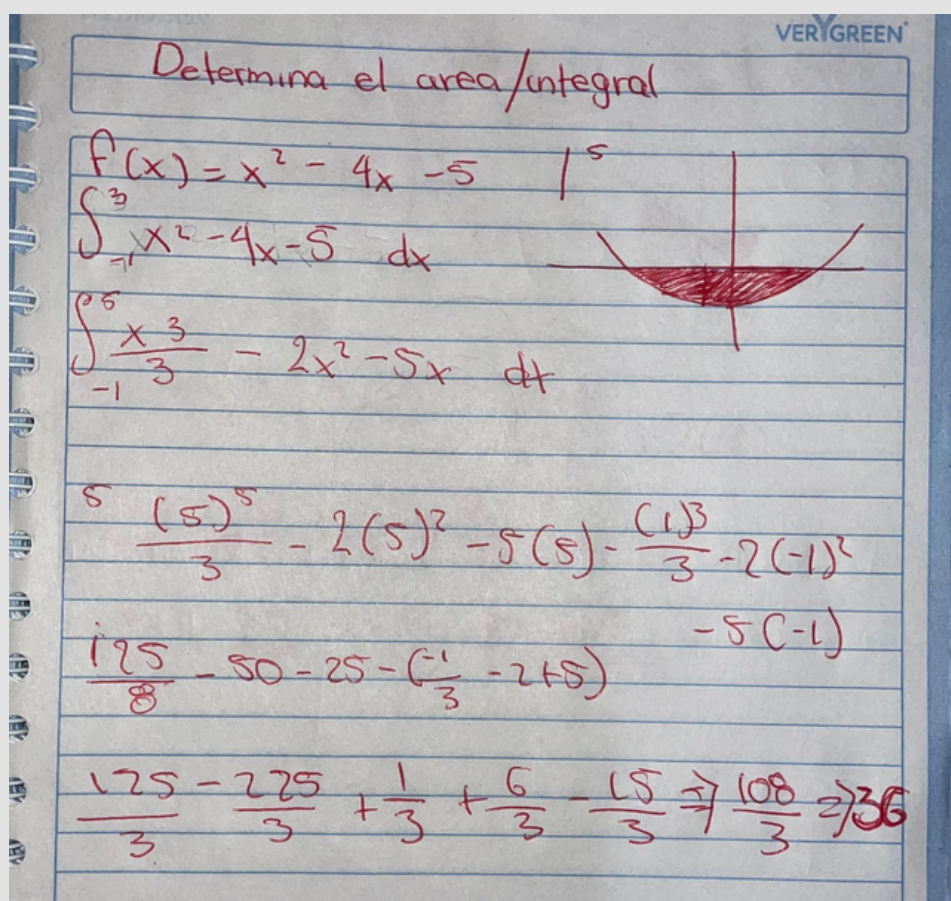 VERYGREEN
Determina el area/integral
f(x) = x² - 4x - 5 | 5
∫₋₁³ x² - 4x - 5 dx
∫₋₁⁵ x³/3 - 2x² - 5x dx
5 (5)⁵/3 - 2(5)² - 5(5) - (1)³/3 - 2(-1)²
- 5(-1)
125/8 - 50 - 25 - (-1/3 - 2+5)
125/3 - 225/3 + 1/3 + 6/3 - 15/3 ⇒ 108/3 ⇒ 36